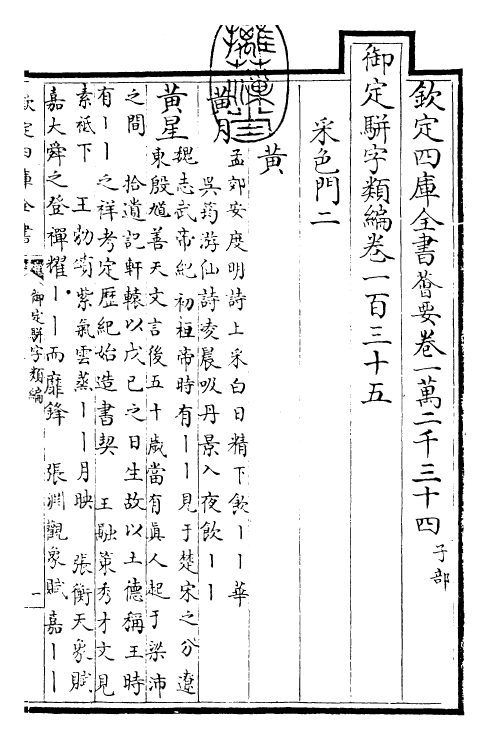 欽定四庫全書薈要卷一萬二千三十四 子部
御定駢字類編卷一百三十五
采色門二
黃
黃月 孟郊安度明詩上采白日精下飲丨丨華
吳筠游仙詩夜晨吸丹景入夜飲丨丨
黃星 魏志武帝紀初桓帝時有丨丨見于楚宋之分遼
東殷馗善天文言後五十歲當有真人起于梁沛
之間 拾遺記軒轅以戊己之日生故以土德稱王時
有丨丨之祥考定歷紀始造書契 王融策秀才文見
素祗下 王勃 紫氣雲蒸丨丨月映 張衡天象賦
嘉大舜之登禪耀丨丨而靡鋒 張淵觀象賦嘉丨丨
欽定四庫全書 御定駢字類編 一